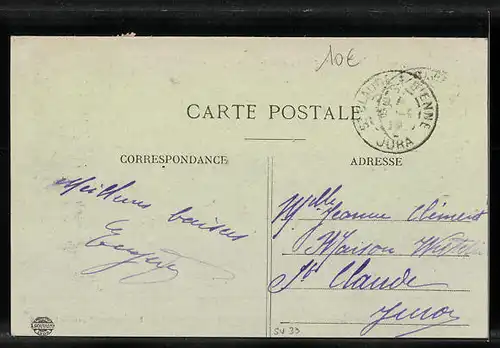 10€
CARTE POSTALE
CORRESPONDANCE
ADRESSE
ST CLAUDE
BIENNE
JURA
Meilleurs baisers
Mlle Jeanne Clément
Maison
St Claude
Jura
SV 33